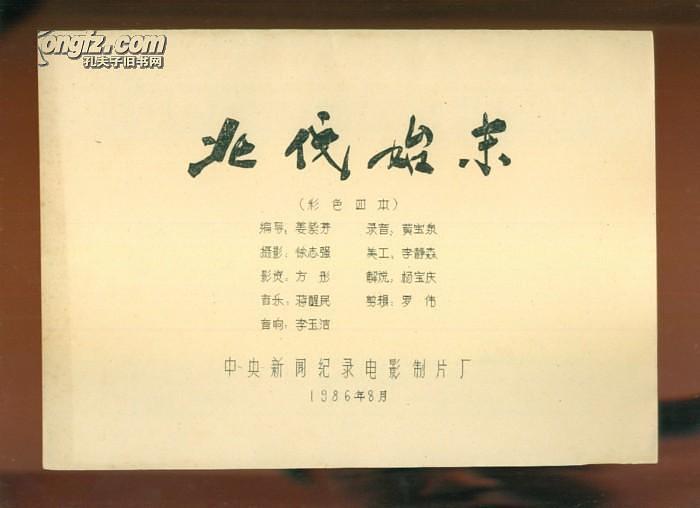 ongfz.com
孔夫子旧书网
北伐始末
（彩色四本）
编导：姜紫芬 录音：黄宝泉
摄影：徐志强 美工：李静森
影资：方彤 解说：杨宝庆
音乐：蒋醒民 剪辑：罗伟
音响：李玉洁
中央新闻纪录电影制片厂
1986年8月